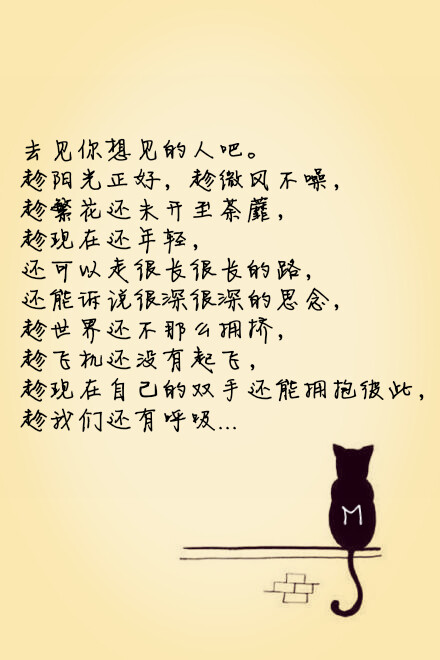 去见你想见的人吧。
趁阳光正好，趁微风不噪，
趁繁花还未开至荼蘼，
趁现在还年轻，
还可以走很长很长的路，
还能诉说很深很深的思念，
趁世界还不那么拥挤，
趁飞机还没有起飞，
趁现在自己的双手还能拥抱彼此，
趁我们还有呼吸...
M